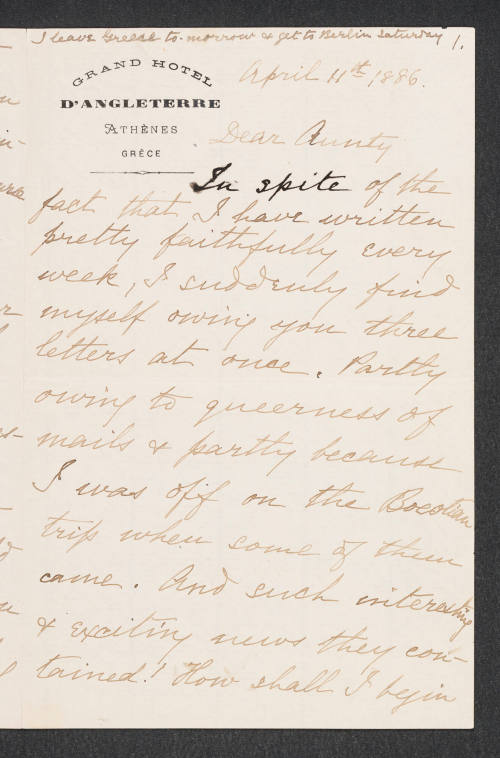 I leave Greece to-morrow & get to Berlin Saturday 1.
GRAND HOTEL
D'ANGLETERRE
ATHÈNES
GRÈCE
April 11th, 1886.
Dear Aunty
In spite of the
fact that I have written
pretty faithfully every
week, I suddenly find
myself owing you three
letters at once. Partly
owing to queerness of
mails & partly because
I was off on the Boeotian
trip when some of them
came. And such interesting
& exciting news they con-
tained! How shall I begin